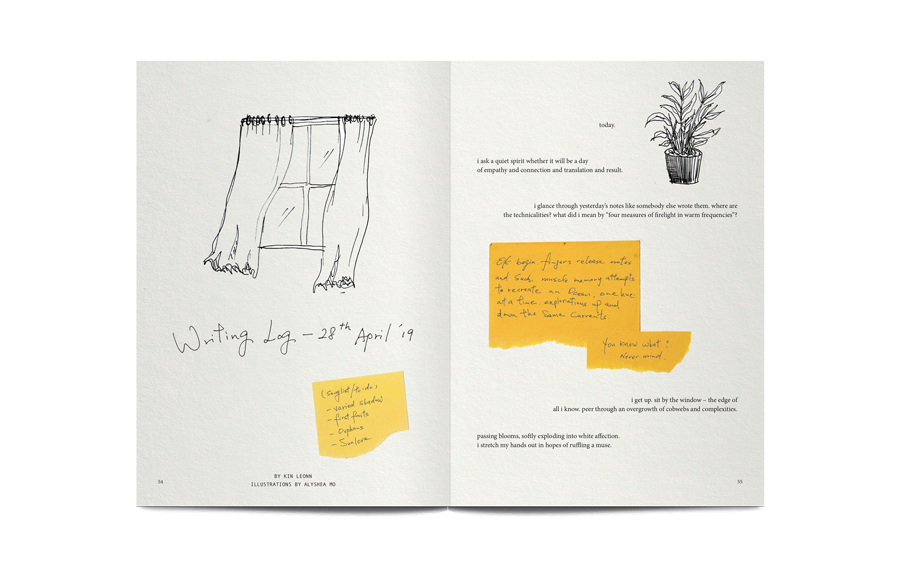 Writing Log – 28th April '19
(songlist/to-do)
- varied shadows
- first fruits
- Orphans
-
BY KIN LEONN
ILLUSTRATIONS BY ALYSHEA MO
54
today.
i ask a quiet spirit whether it will be a day
of empathy and connection and translation and result.
i glance through yesterday's notes like somebody else wrote them. where are
the technicalities? what did i mean by "four measures of firelight in warm frequencies"?
Ok begin fingers release notes
and such muscle memory attempts
to recreate an ocean, one wave
at a time explorations up and
down the same currents
You know what?
Never mind.
i get up. sit by the window – the edge of
all i know. peer through an overgrowth of cobwebs and complexities.
passing blooms, softly exploding into white affection.
i stretch my hands out in hopes of ruffling a muse.
55